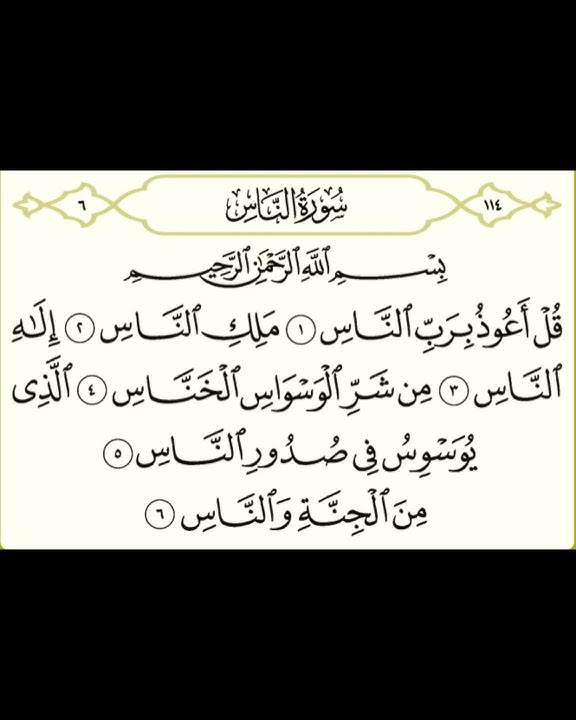 ١١٤ سُورَةُ النَّاسِ ٦
بِسْمِ ٱللَّهِ ٱلرَّحْمَٰنِ ٱلرَّحِيمِ
قُلْ أَعُوذُ بِرَبِّ ٱلنَّاسِ ١ مَلِكِ ٱلنَّاسِ ٢ إِلَٰهِ
ٱلنَّاسِ ٣ مِن شَرِّ ٱلْوَسْوَاسِ ٱلْخَنَّاسِ ٤ ٱلَّذِى
يُوَسْوِسُ فِى صُدُورِ ٱلنَّاسِ ٥
مِنَ ٱلْجِنَّةِ وَٱلنَّاسِ ٦